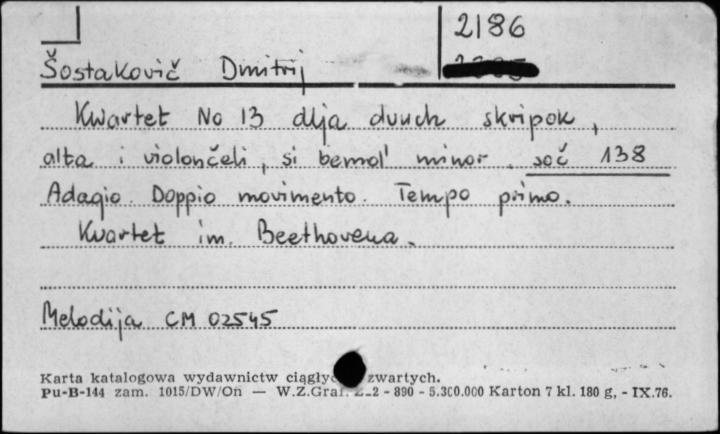 2186
Šostakovič Dmitrij
Kwartet No 13 dlja dvuch skripok,
alta i violončeli, si bemol' minor. soč 138
Adagio. Doppio movimento. Tempo primo.
Kvartet im. Beethovena.
Melodija CM 02545
Karta katalogowa wydawnictw zwartych.
Pu-B-144 zam. 1015/DW/On — W.Z.Graf. - 890 - 5.300.000 Karton 7 kl. 180 g, - IX.76.